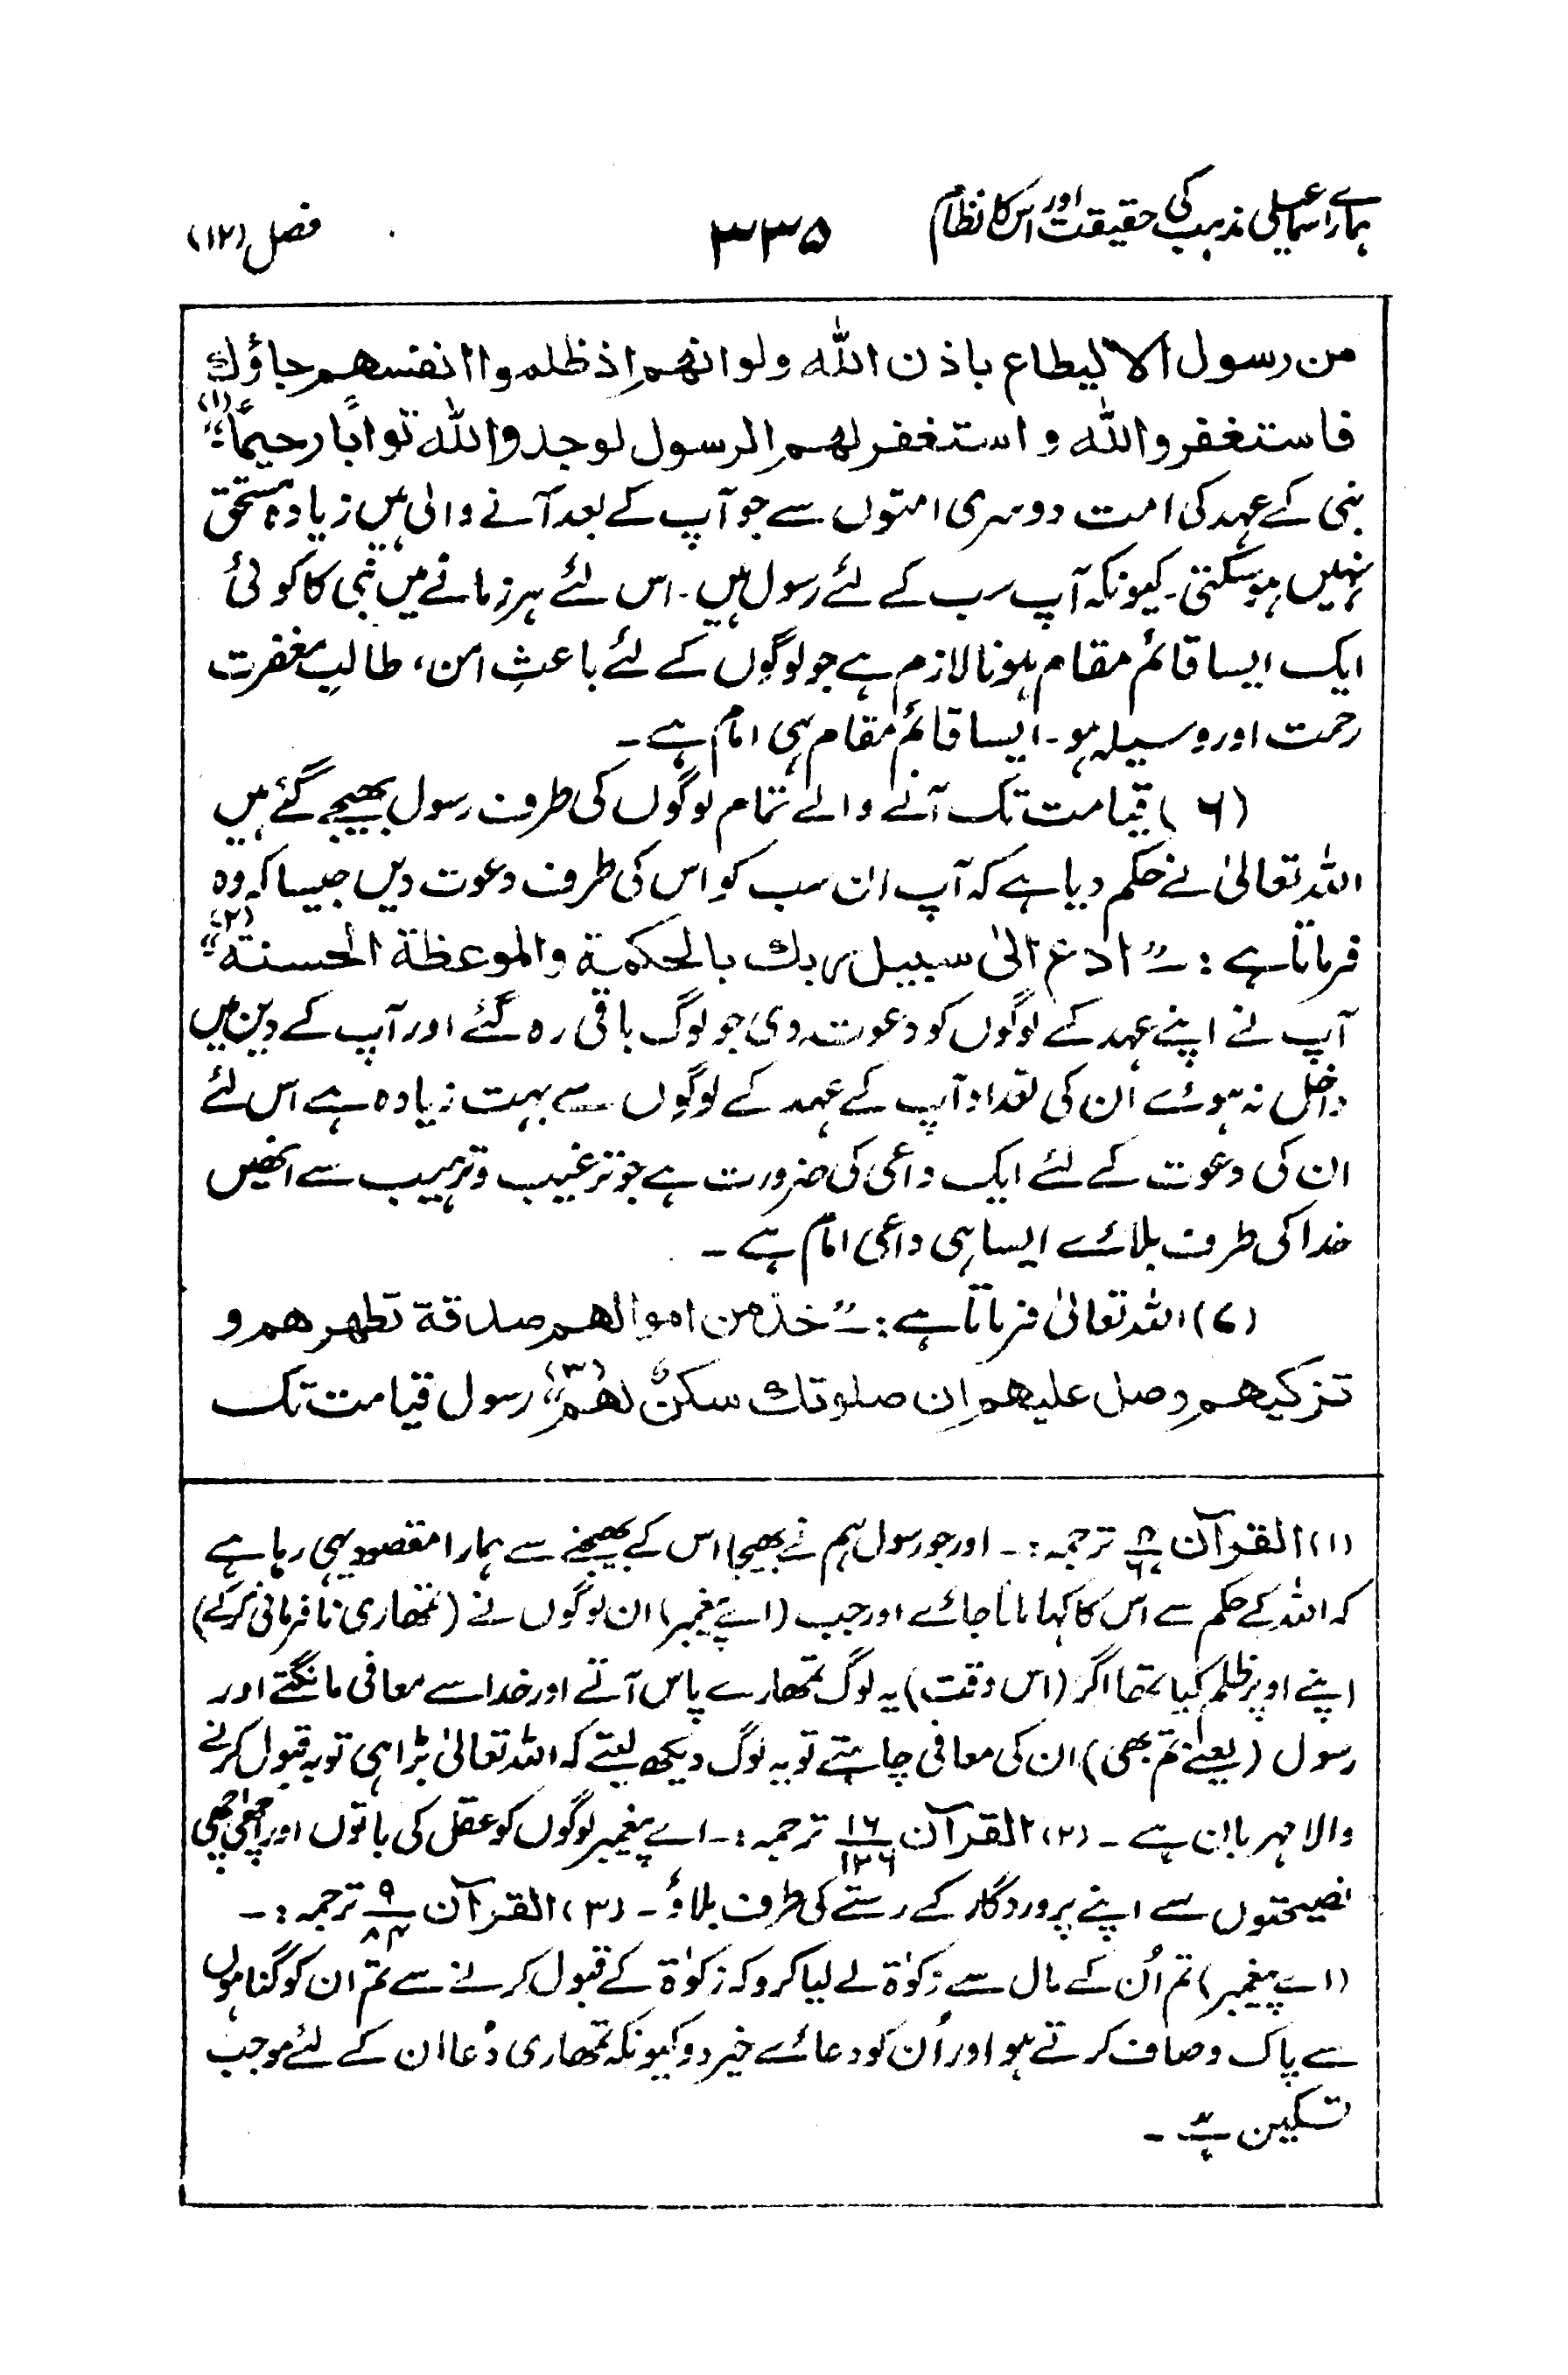 ہمارے اسماعیلی مذہب کی حقیقت اور اس کا نظام ۳۳۵ فصل (۱۲)
من رسول الا لیطاع باذن اللّٰہ ولو انھم اذ ظلموا انفسھم جاؤك
فاستغفروا اللّٰہ و استغفر لھم الرسول لوجدوا اللّٰہ توابًا رحیمًا"(۱)
نبی کے عہد کی امت دوسری امتوں سے جو آپ کے بعد آنے والی ہیں زیادہ مستحق
نہیں ہو سکتی۔ کیونکہ آپ سب کے لئے رسول ہیں۔ اس لئے ہر زمانے میں نبی کا کوئی
ایک ایسا قائم مقام ہونا لازم ہے جو لوگوں کے لئے باعثِ امن، طالبِ مغفرت
رحمت اور وسیلہ ہو۔ ایسا قائم مقام ہی امام ہے۔
(۶) قیامت تک آنے والے تمام لوگوں کی طرف رسول بھیجے گئے ہیں
اللہ تعالیٰ نے حکم دیا ہے کہ آپ ان سب کو اس کی طرف دعوت دیں جیسا کہ وہ
فرماتا ہے :۔ "ادع الیٰ سبیل ربك بالحکمة والموعظة الحسنة"(۲)
آپ نے اپنے عہد کے لوگوں کو دعوت دی جو لوگ باقی رہ گئے اور آپ کے دین میں
داخل نہ ہوئے اُن کی تعداد آپ کے عہد کے لوگوں سے بہت زیادہ ہے اس لئے
ان کی دعوت کے لئے ایک داعی کی ضرورت ہے جو ترغیب و ترہیب سے انھیں
خدا کی طرف بلائے ایسا ہی داعی امام ہے۔
(۷) اللہ تعالیٰ فرماتا ہے :۔ "خذ من اموالھم صدقة تطھرھم و
تزکیھم وصل علیھم ان صلوتك سکنٌ لھم"(۳) رسول قیامت تک
(۱) القرآن ۵/۶۰ ترجمہ :۔ اور جو رسول ہم نے بھیجا اس کے بھیجنے سے ہمارا مقصود یہی رہا ہے
کہ اللہ کے حکم سے اس کا کہا مانا جائے اور جب (اے پیغمبر) ان لوگوں نے (تمھاری نافرمانی کر کے)
اپنے اوپر ظلم کیا تھا اگر (اس وقت) یہ لوگ تمھارے پاس آتے اور خدا سے معافی مانگتے اور
رسول (یعنے تم بھی) ان کی معافی چاہتے تو یہ لوگ دیکھ لیتے کہ اللہ تعالیٰ بڑا ہی توبہ قبول کرنے
والا مہربان ہے۔ (۲) القرآن ۱۶/۱۲۶ ترجمہ :۔ اے پیغمبر لوگوں کو عقل کی باتوں اور اچھی اچھی
نصیحتوں سے اپنے پروردگار کے رستے کی طرف بلاؤ۔ (۳) القرآن ۹/۸۴ ترجمہ :۔
(اے پیغمبر) تم اُن کے مال سے زکوٰۃ لے لیا کرو کہ زکوٰۃ کے قبول کرنے سے تم ان کو گناہوں
سے پاک و صاف کرتے ہو اور اُن کو دعائے خیر دو کیونکہ تمھاری دُعا ان کے لئے موجب
تسکین ہے۔